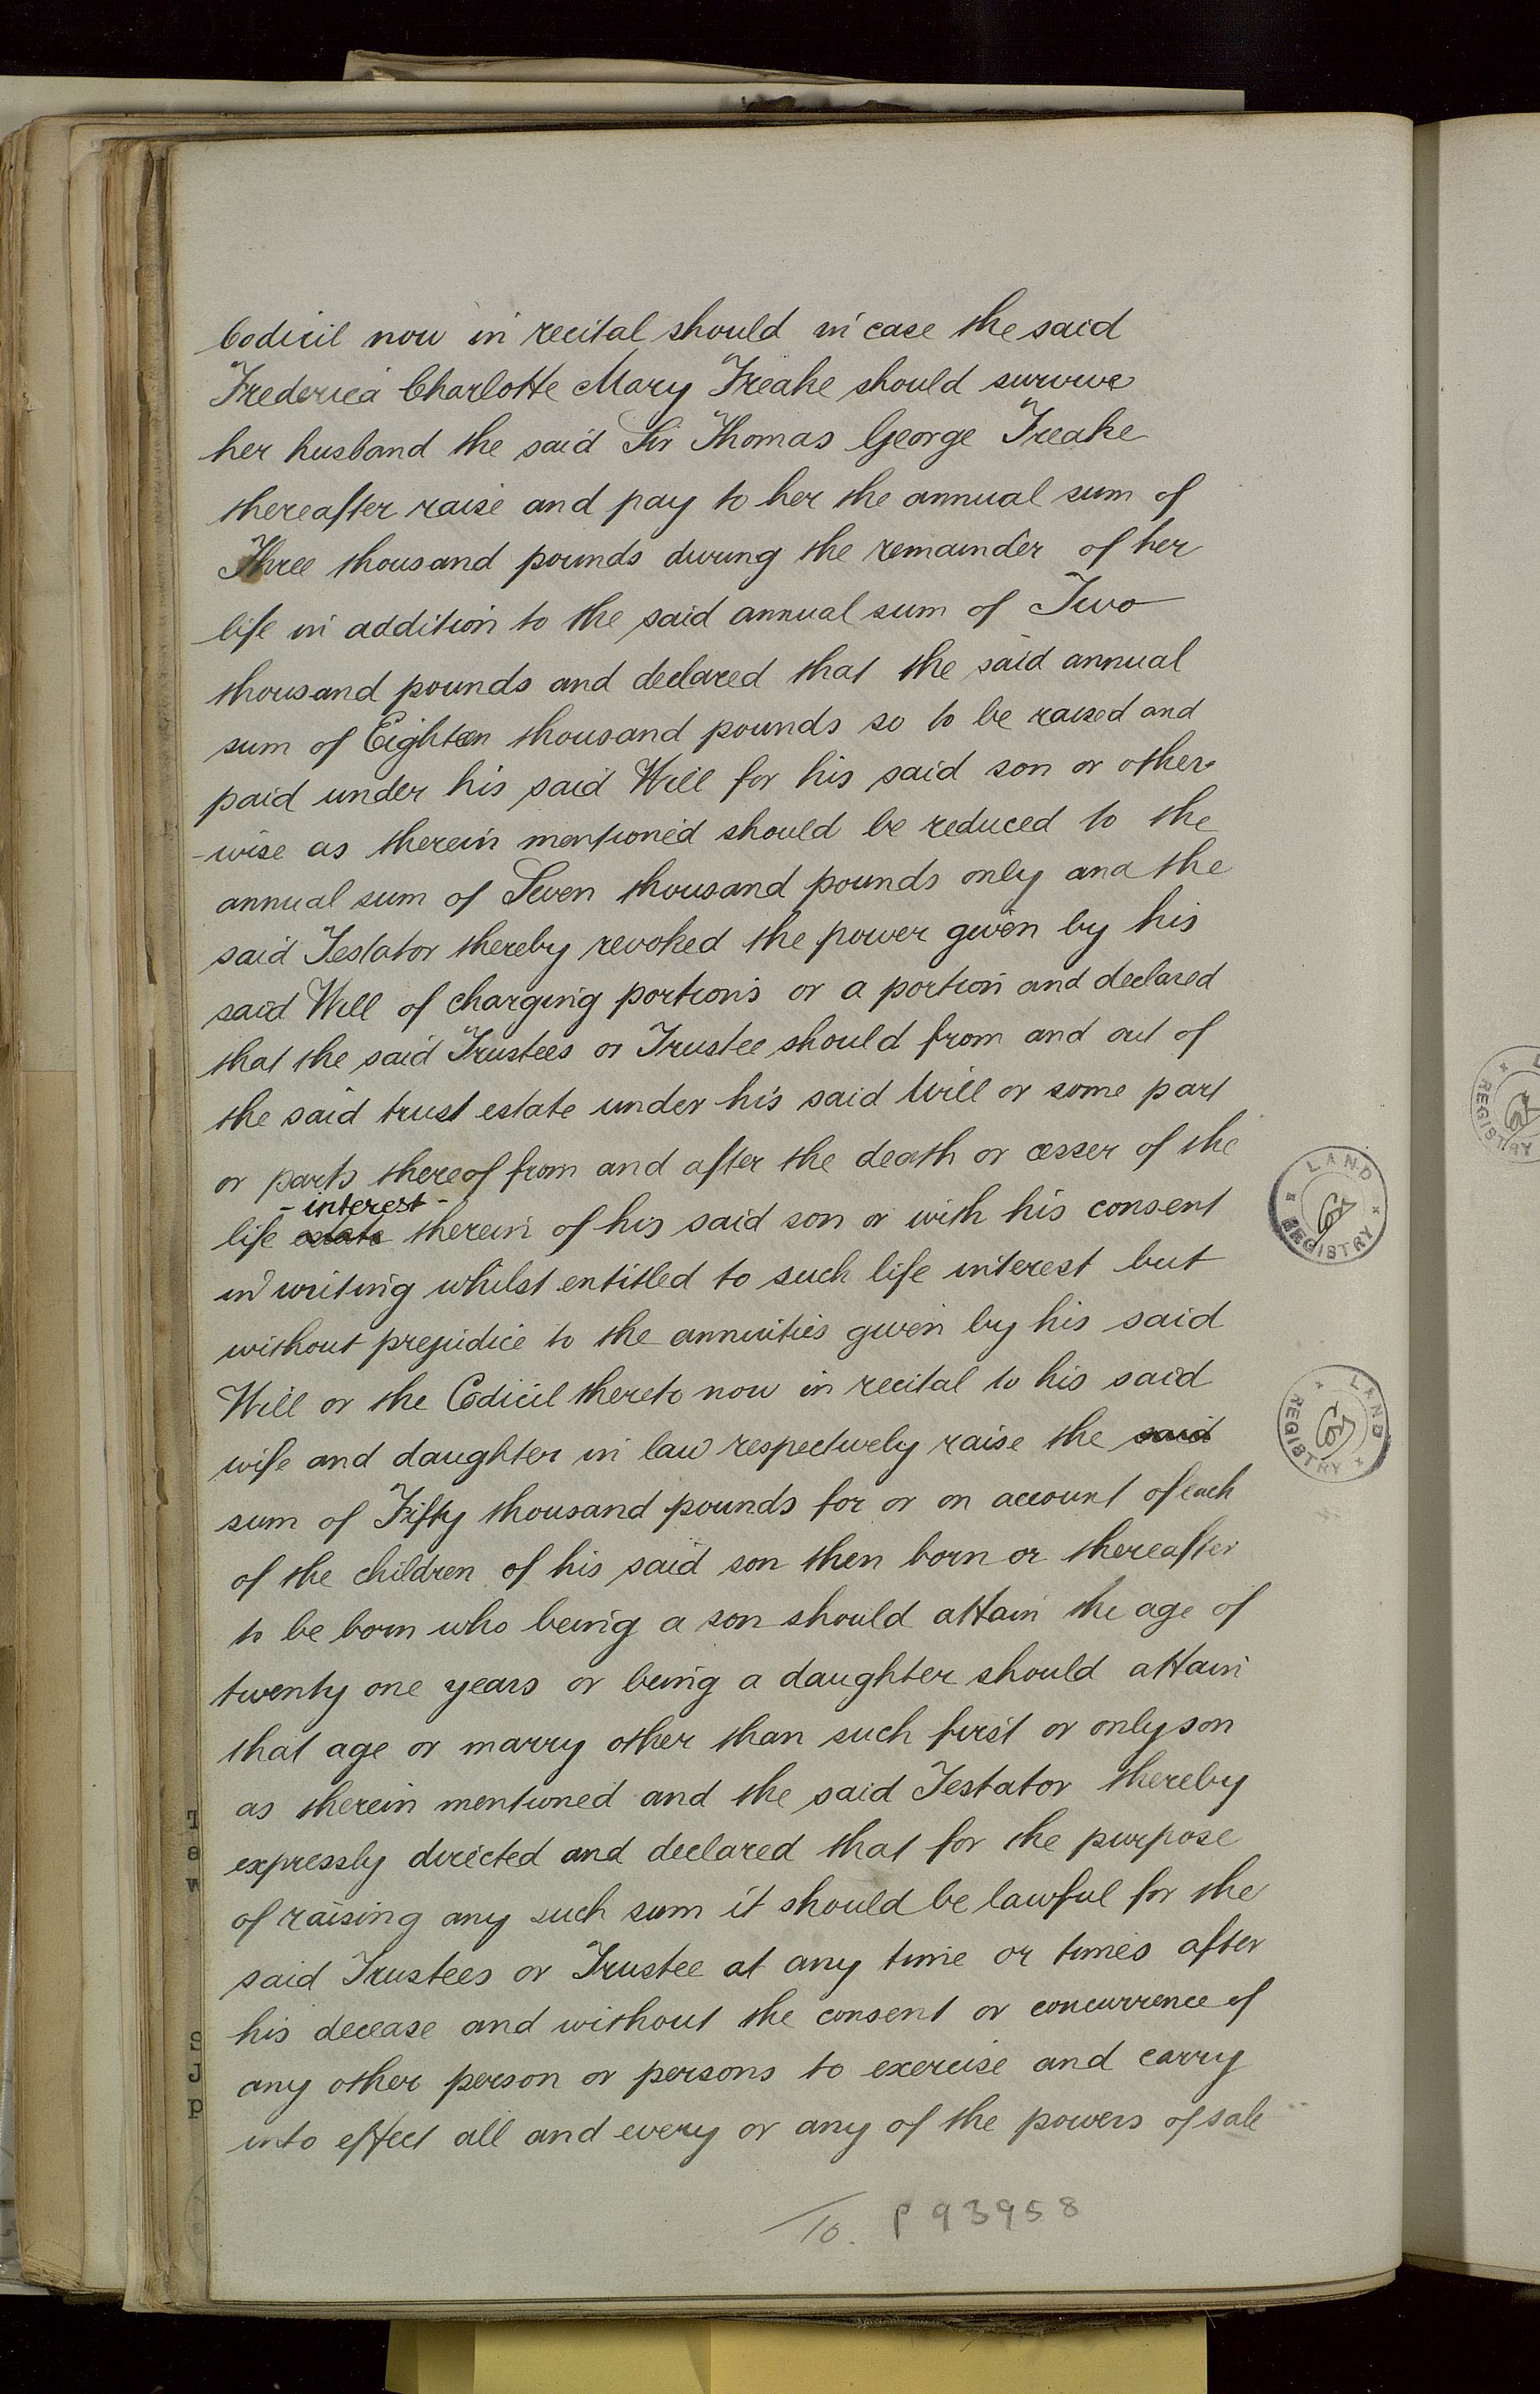 Codicil now in recital should in case the said
Frederica Charlotte Mary Freake should survive
her husband the said Sir Thomas George Freake
thereafter raise and pay to her the annual sum of
Three thousand pounds during the remainder of her
life in addition to the said annual sum of Two
thousand pounds and declared that the said annual
sum of Eighteen thousand pounds so to be raised and
paid under his said Will for his said son or other-
-wise as therein mentioned should be reduced to the
annual sum of Seven thousand pounds only and the
said Testator thereby revoked the power given by his
said Will of charging portions or a portion and declared
that the said Trustees or Trustee should from and out of
the said trust estate under his said Will or some part
or parts thereof from and after the death or cesser of the
- interest -
life estate therein of his said son or with his consent
in writing whilst entitled to such life interest but
without prejudice to the annuities given by his said
Will or the Codicil thereto now in recital to his said
wife and daughter in law respectively raise the said
sum of Fifty thousand pounds for or on account of each
of the children of his said son then born or thereafter
to be born who being a son should attain the age of
twenty one years or being a daughter should attain
that age or marry other than such first or only son
as therein mentioned and the said Testator thereby
expressly directed and declared that for the purpose
of raising any such sum it should be lawful for the
said Trustees or Trustee at any time or times after
his decease and without the consent or concurrence of
any other person or persons to exercise and carry
into effect all and every or any of the powers of sale
LAND REGISTRY
LAND REGISTRY
REGISTRY
T
e
w
S
J
P
10. P 93958